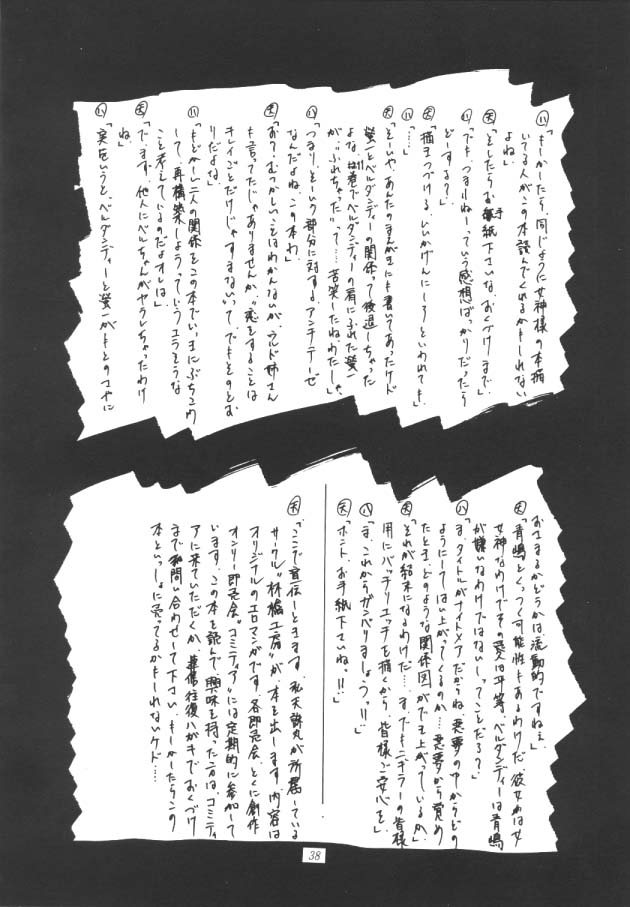 ㋩「もしかしたら、同じように女神様の本描
いてる人がこの本読んでくれるかもしれない
よね。」
㊝「そしたらお手紙下さいな、おくづけまで」
㋩「でも、つまりねーっていう感想ばっかりだったら
どーする？」
㊝「描きつづける、いいかげんにしろといわれても。」
㋩「……」
㊝「そーいや、あんたのまんがにも書いてあったけど
螢一とベルダンディーの関係って後退しちゃった
よな。 巻でベルダンディーの肩にふれた螢一
が、“ふれちゃった”って……苦笑したねわたしゃ」
㋩「つまり、そーいう部分に対するアンチテーゼ
なんだよね、この本わ」
㊝「おう、むつかしいことはわかんないが、ウルド姉さん
も言ってたじゃありませんか、“恋をすることは
キレイごとだけじゃすまない”って、でもそのとお
りだよな」
㋩「もどかしい二人の関係をこの本でいっきにぶちこわ
して、再構築しようっていうエラそうな
こと考えているのだよオレは」
㊝「でまず、他人にベルちゃんがヤラレちゃったわけ
ね」
㋩「実をいうと、ベルダンディーと螢一がもとのさやに
おさまるかどうかは、流動的ですねぇ」
㊝「青嶋とくっつく可能性もあるわけだ、彼女は女
女神なわけでその愛は平等、ベルダンディーは青嶋
が嫌いなわけではないしってことだろ？」
㋩「ま、タイトルがナイトメアだからね、悪夢の中からどの
ようにしてはい上がってくるのか……悪夢から覚め
たとき、どのような関係図ができ上がっているか、
それが結末になるわけだ……すでもニナラーの皆様
用にバッチリエッチを描くから、皆様ご安心を」
㋩「ま、これからガンバりましょうっ!!」
㊝「ホント、お手紙下さいね。!!」
㊝「ここで宣伝しときます、私天誅丸が所属している
サークル“林檎工房”が本を出します、内容は
オリジナルのエロマンガです、各即売会、とくに創作
オンリー即売会“コミティア”には定期的に参加して
います、この本を読んで興味を持った方は、コミティ
アに来ていただくか、 往復ハガキでおくづけ
まで 問い合わせして下さい、もしかしたらこの
本といっしょに売ってるかもしれないケド……
38